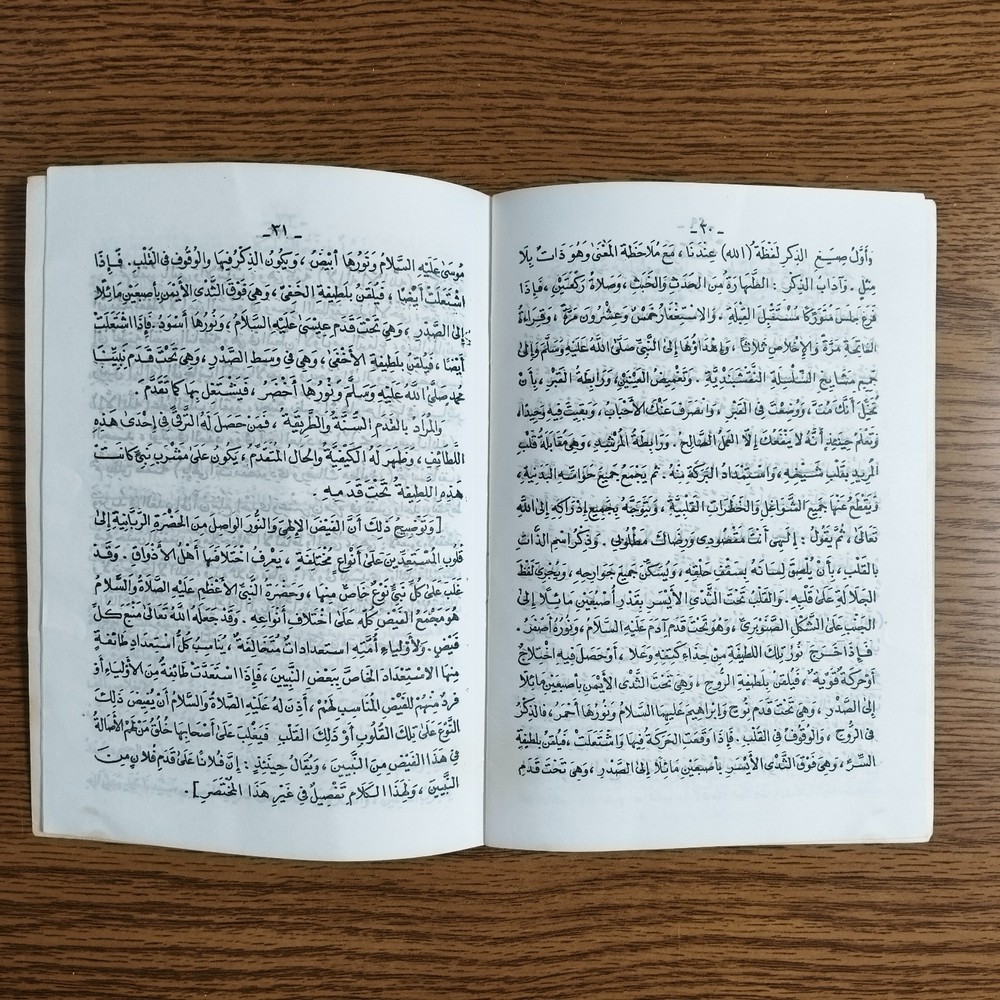 -٢٠-
وَأَوَّلُ صِيَغِ الذِّكْرِ لَفْظَةُ (الله) عِنْدَنَا، مَعَ مُلَاحَظَةِ الْمَعْنَىٰ وَهُوَ ذَاتٌ بِلَا
مِثْلٍ. وَآدَابُ الذِّكْرِ: الطَّهَارَةُ مِنَ الْحَدَثِ وَالْخَبَثِ، وَصَلَاةُ رَكْعَتَيْنِ، فَإِذَا
فَرَغَ جَلَسَ مُتَوَرِّكًا مُسْتَقْبِلَ الْقِبْلَةِ. وَالِاسْتِغْفَارُ خَمْسٌ وَعِشْرُونَ مَرَّةً، وَقِرَاءَةُ
الْفَاتِحَةِ مَرَّةً وَالْإِخْلَاصِ ثَلَاثًا، وَإِهْدَاؤُهَا إِلَى النَّبِيِّ صَلَّى اللَّهُ عَلَيْهِ وَسَلَّمَ وَإِلَىٰ
جَمِيعِ مَشَايِخِ السِّلْسِلَةِ النَّقْشَبَنْدِيَّةِ. وَتَغْمِيضُ الْعَيْنَيْنِ، وَرَابِطَةُ الْقَبْرِ، بِأَنْ
تُخَيِّلَ أَنَّكَ مُتَّ، وَوُضِعْتَ فِي الْقَبْرِ، وَانْصَرَفَ عَنْكَ الْأَحْبَابُ، وَبَقِيتَ فِيهِ وَحِيدًا،
وَتَعْلَمُ حِينَئِذٍ أَنَّهُ لَا يَنْفَعُكَ إِلَّا الْعَمَلُ الصَّالِحُ. وَرَابِطَةُ الْمُرْشِدِ، وَهِيَ مُقَابَلَةُ قَلْبِ
الْمُرِيدِ بِقَلْبِ شَيْخِهِ، وَاسْتِمْدَادُ الْبَرَكَةِ مِنْهُ. ثُمَّ يَجْمَعُ جَمِيعَ حَوَاسِّهِ الْبَدَنِيَّةِ،
وَيَقْطَعُ عَنْهَا جَمِيعَ الشَّوَاغِلِ وَالْخَطَرَاتِ الْقَلْبِيَّةِ، وَيَتَوَجَّهُ بِجَمِيعِ إِدْرَاكِهِ إِلَى اللَّهِ
تَعَالَىٰ، ثُمَّ يَقُولُ: إِلٰهِي أَنْتَ مَقْصُودِي وَرِضَاكَ مَطْلُوبِي. وَذِكْرُ اسْمِ الذَّاتِ
بِالْقَلْبِ، بِأَنْ يُلْصِقَ لِسَانَهُ بِسَقْفِ حَلْقِهِ، وَيُسَكِّنَ جَمِيعَ جَوَارِحِهِ، وَيُجْرِيَ لَفْظَ
الْجَلَالَةِ عَلَىٰ قَلْبِهِ. وَالْقَلْبُ تَحْتَ الثَّدْيِ الْأَيْسَرِ بِقَدْرِ أُصْبُعَيْنِ مَائِلًا إِلَى
الْجَنْبِ عَلَى الشَّكْلِ الصَّنَوْبَرِيِّ، وَهُوَ تَحْتَ قَدَمِ آدَمَ عَلَيْهِ السَّلَامُ، وَنُورُهُ أَصْفَرُ.
فَإِذَا خَرَجَ نُورُ تِلْكَ اللَّطِيفَةِ مِنْ حِذَاءِ كَتِفِهِ وَعَلَا، أَوْ حَصَلَ فِيهِ اخْتِلَاجٌ
أَوْ حَرَكَةٌ قَوِيَّةٌ، فَيُلَقَّنُ بِلَطِيفَةِ الرُّوحِ، وَهِيَ تَحْتَ الثَّدْيِ الْأَيْمَنِ بِأُصْبُعَيْنِ مَائِلًا
إِلَى الصَّدْرِ، وَهِيَ تَحْتَ قَدَمِ نُوحٍ وَإِبْرَاهِيمَ عَلَيْهِمَا السَّلَامُ وَنُورُهَا أَحْمَرُ، فَالذِّكْرُ
فِي الرُّوحِ، وَالْوُقُوفُ فِي الْقَلْبِ. فَإِذَا وَقَعَتِ الْحَرَكَةُ فِيهَا وَاشْتَعَلَتْ، فَيُلَقَّنُ بِلَطِيفَةِ
السِّرِّ، وَهِيَ فَوْقَ الثَّدْيِ الْأَيْسَرِ بِأُصْبُعَيْنِ مَائِلًا إِلَى الصَّدْرِ، وَهِيَ تَحْتَ قَدَمِ
-٢١-
مُوسَىٰ عَلَيْهِ السَّلَامُ وَنُورُهَا أَبْيَضُ، وَيَكُونُ الذِّكْرُ فِيهَا وَالْوُقُوفُ فِي الْقَلْبِ. فَإِذَا
اشْتَعَلَتْ أَيْضًا، فَيُلَقَّنُ بِلَطِيفَةِ الْخَفِيِّ، وَهِيَ فَوْقَ الثَّدْيِ الْأَيْمَنِ بِأُصْبُعَيْنِ مَائِلًا
إِلَى الصَّدْرِ، وَهِيَ تَحْتَ قَدَمِ عِيسَىٰ عَلَيْهِ السَّلَامُ، وَنُورُهَا أَسْوَدُ. فَإِذَا اشْتَعَلَتْ
أَيْضًا، فَيُلَقَّنُ بِلَطِيفَةِ الْأَخْفَىٰ، وَهِيَ فِي وَسَطِ الصَّدْرِ، وَهِيَ تَحْتَ قَدَمِ نَبِيِّنَا
مُحَمَّدٍ صَلَّى اللَّهُ عَلَيْهِ وَسَلَّمَ وَنُورُهَا أَخْضَرُ، فَيَشْتَغِلُ بِهَا كَمَا تَقَدَّمَ.
وَالْمُرَادُ بِالْقَدَمِ السُّنَّةُ وَالطَّرِيقَةُ، فَمَنْ حَصَلَ لَهُ التَّرَقِّي فِي إِحْدَىٰ هَذِهِ
اللَّطَائِفِ، وَظَهَرَ لَهُ الْكَيْفِيَّةُ وَالْحَالُ الْمُتَقَدِّمُ، يَكُونُ عَلَىٰ مَشْرَبِ نَبِيٍّ كَانَتْ
هَذِهِ اللَّطِيفَةُ تَحْتَ قَدَمِهِ.
[وَتَوْضِيحُ ذَلِكَ أَنَّ الْفَيْضَ الْإِلٰهِيَّ وَالنُّورَ الْوَاصِلَ مِنَ الْحَضْرَةِ الرَّبَّانِيَّةِ إِلَىٰ
قُلُوبِ الْمُسْتَعِدِّينَ عَلَىٰ أَنْوَاعٍ مُخْتَلِفَةٍ، يَعْرِفُ اخْتِلَافَهَا أَهْلُ الْأَذْوَاقِ. وَقَدْ
غَلَبَ عَلَىٰ كُلِّ نَبِيٍّ نَوْعٌ خَاصٌّ مِنْهَا، وَحَضْرَةُ النَّبِيِّ الْأَعْظَمِ عَلَيْهِ الصَّلَاةُ وَالسَّلَامُ
هُوَ مَجْمَعُ الْفَيْضِ كُلِّهِ عَلَىٰ اخْتِلَافِ أَنْوَاعِهِ. وَقَدْ جَعَلَهُ اللَّهُ تَعَالَىٰ مَنْبَعَ كُلِّ
فَيْضٍ. وَلِأَوْلِيَاءِ أُمَّتِهِ اسْتِعْدَادَاتٌ مُتَخَالِفَةٌ، يُنَاسِبُ كُلُّ اسْتِعْدَادِ طَائِفَةٍ
مِنْهَا الِاسْتِعْدَادَ الْخَاصَّ بِبَعْضِ النَّبِيِّينَ، فَإِذَا اسْتَعَدَّتْ طَائِفَةٌ مِنَ الْأَوْلِيَاءِ أَوْ
فَرْدٌ مِنْهُمْ لِلْفَيْضِ الْمُنَاسِبِ لَهُمْ، أُذِنَ لَهُ عَلَيْهِ الصَّلَاةُ وَالسَّلَامُ أَنْ يُفِيضَ ذَلِكَ
النَّوْعَ عَلَىٰ تِلْكَ الْقُلُوبِ أَوْ ذَلِكَ الْقَلْبِ. فَيَغْلِبُ عَلَىٰ أَصْحَابِهَا خُلُقُ مَنْ لَهُمُ الْأَصَالَةُ
فِي هَذَا الْفَيْضِ مِنَ النَّبِيِّينَ، وَيُقَالُ حِينَئِذٍ: إِنَّ فُلَانًا عَلَىٰ قَدَمِ فُلَانٍ مِنَ
النَّبِيِّينَ، وَلِهَذَا الْكَلَامِ تَفْصِيلٌ فِي غَيْرِ هَذَا الْمُخْتَصَرِ].